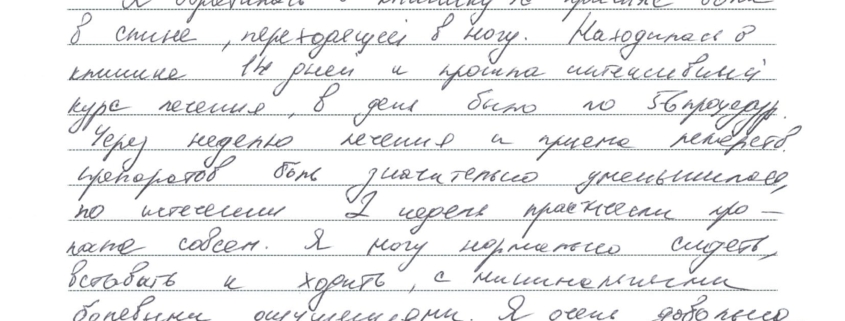 Я обратилась в клинику по причине боли
в спине, переходящей в ногу. Находилась в
клинике 14 дней и прошла интенсивный
курс лечения, в день было по 5-6 процедур.
Через неделю лечения и приема лекарств.
препаратов боль значительно уменьшилась,
по истечении 2 недель практически про-
пала совсем. Я могу нормально сидеть,
вставать и ходить, с минимальными
болевыми ощущениями. Я очень довольна